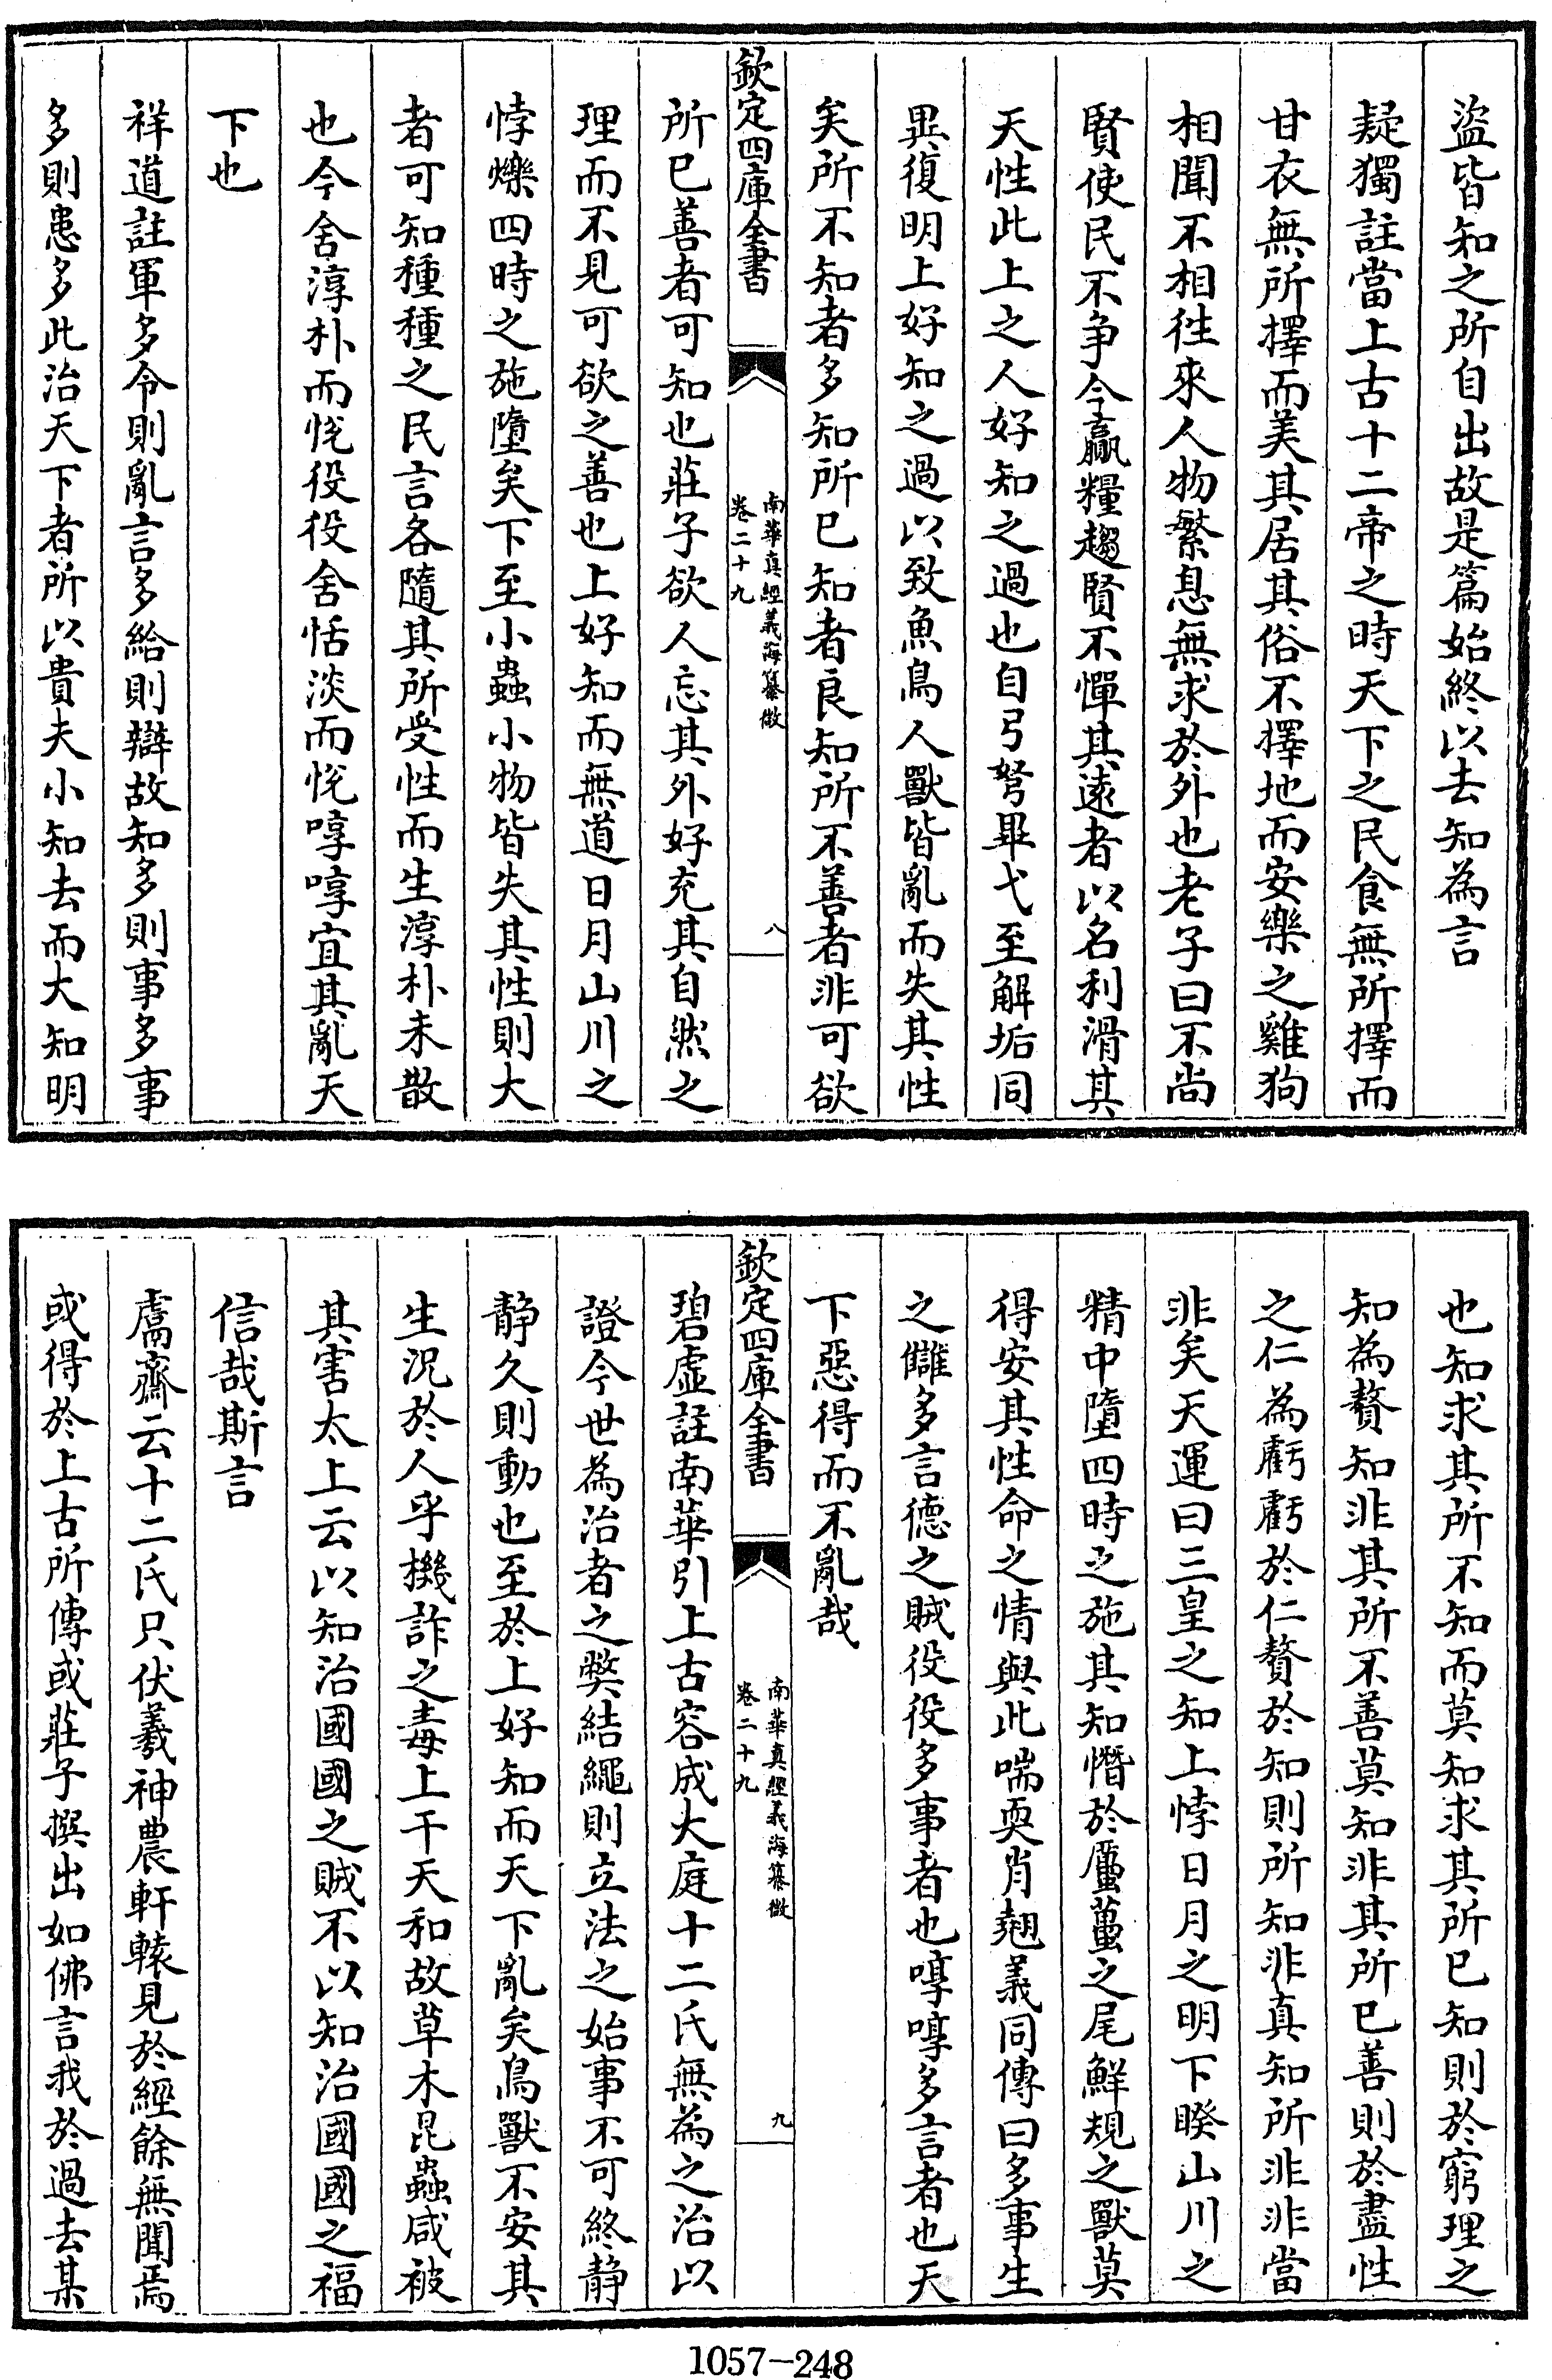 盜皆知之所自出故是篇始終以去知為言
疑獨註當上古十二帝之時天下之民食無所擇而
甘衣無所擇而美其居其俗不擇地而安樂之雞狗
相聞不相徃來人物繁息無求於外也老子曰不尚
賢使民不争今贏糧趨賢不憚其遠者以名利滑其
天性此上之人好知之過也自弓弩畢弋至解垢同
異復明上好知之過以致魚鳥人獸皆亂而失其性
矣所不知者多知所已知者良知所不善者非可欲
欽定四庫全書
南華真經義海纂微
卷二十九
八
所已善者可知也莊子欲人忘其外好充其自然之
理而不見可欲之善也上好知而無道日月山川之
悖爍四時之施墮矣下至小蟲小物皆失其性則大
者可知種種之民言各隨其所受性而生淳朴未散
也今舍淳朴而恱役役舍恬淡而恱啍啍宜其亂天
下也
祥道註軍多令則亂言多給則辯故知多則事多事
多則患多此治天下者所以貴夫小知去而大知明
也知求其所不知而莫知求其所已知則於窮理之
知為贅知非其所不善莫知非其所已善則於盡性
之仁為虧虧於仁贅於知則所知非真知所非非當
非矣天運曰三皇之知上悖日月之明下睽山川之
精中墮四時之施其知憯於蠆之尾鮮規之獸莫
得安其性命之情與此喘耎肖翹義同傳曰多事生
之讎多言德之賊役役多事者也啍啍多言者也天
下惡得而不亂哉
欽定四庫全書
南華真經義海纂微
卷二十九
九
碧虛註南華引上古容成大庭十二氏無為之治以
證今世為治者之弊結繩則立法之始事不可終静
静久則動也至於上好知而天下亂矣鳥獸不安其
生況於人乎機詐之毒上干天和故草木昆蟲咸被
其害太上云以知治國國之賊不以知治國國之福
信哉斯言
鬳齋云十二氏只伏羲神農軒轅見於經餘無聞焉
或得於上古所傳或莊子撰出如佛言我於過去某
1057-248